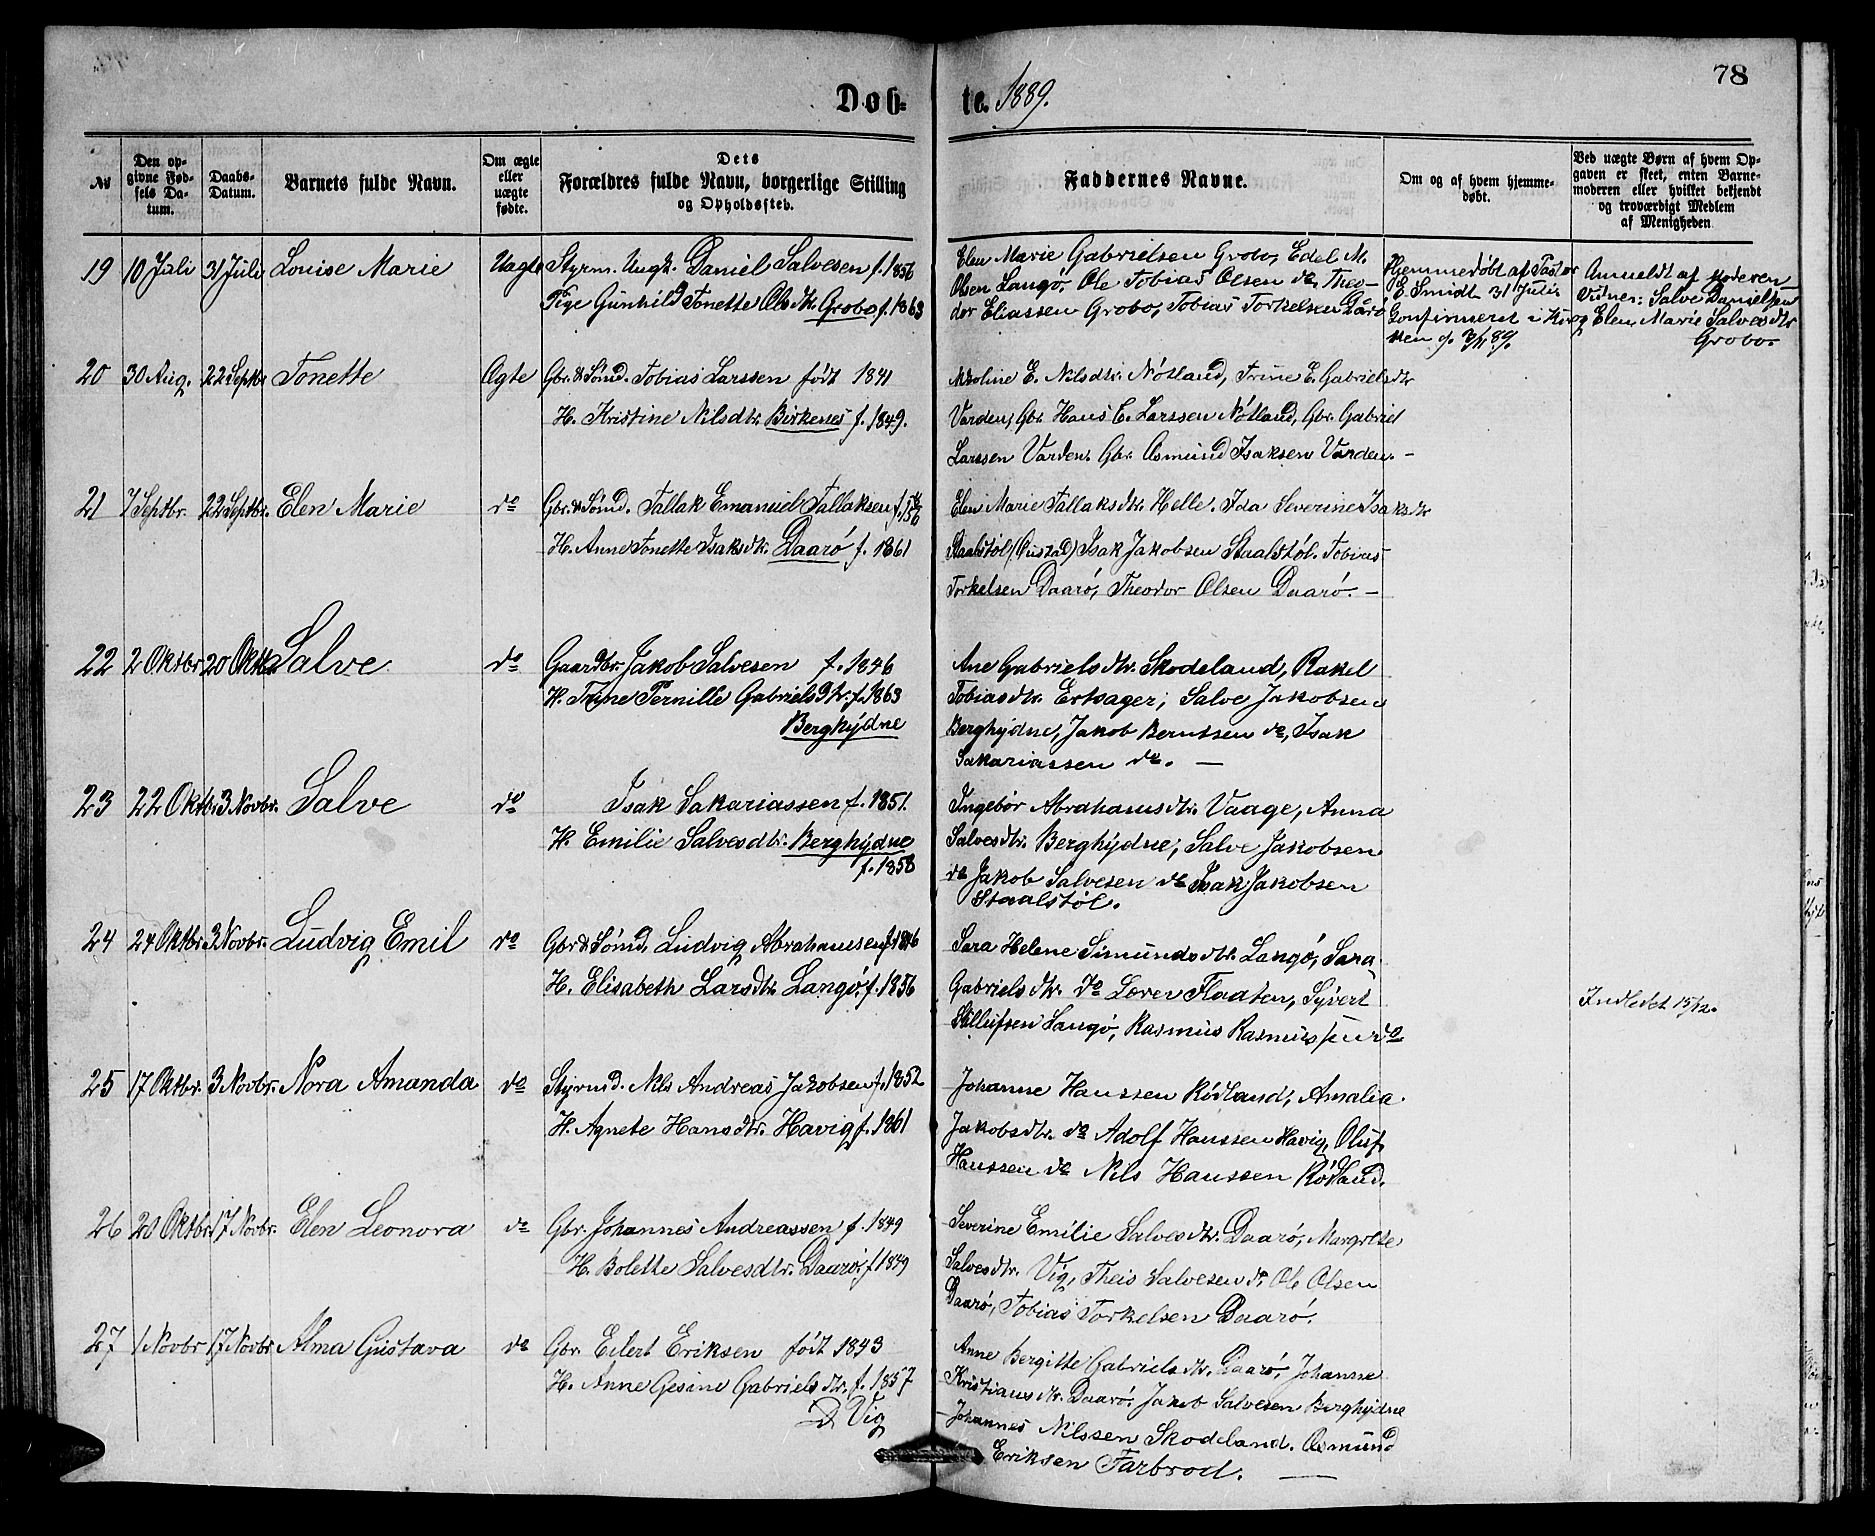 78
Døb- te. 1889.
№
Den op-
givne Fød-
sels Da-
tum.
Daabs-
Datum.
Barnets fulde Navn.
Om ægte
eller
uægte
fødte.
Dets
Forældres fulde Navn, borgerlige Stilling
og Opholdssted.
Faddernes Navne.
Om og af hvem hjemme-
døbt.
Ved uægte Børn af hvem Op-
gaven er skeet, enten Barne-
moderen eller hvilket bekjendt
og troværdigt Medlem
af Menigheden
19 10 Juli 31 Juli Louise Marie Uægte
Styrm. Ungk. Daniel Salvesen f. 1856
Pige Gunhild Tonette Olsdtr. Grobo f. 1863
Elen Marie Gabrielsen Grobo, Edel M.
Olsen Langø, Ole Tobias Olsen do, Theo-
dor Eliassen Grobo, Tobias Torkelsen Dårø
Hjemmedøbt af Pastor
E. Smidt 31 Julie
Confirmeret i Kir
ken d.
Anmeldt af Moderen
Vidner: Salve Danielsen
og Elen Marie Salvesdtr
Grobo.
20 30 Aug. 22 Septbr Tonette Ægte
Gbr. & Sømd. Tobias Larssen født 1841
H. Kristine Nilsdtr. Birkenes f. 1849.
E. Nilsdtr. Nótland, Trine E. Gabrielsdtr
Varden, Gbr. Hans E. Larssen Nótland, Gbr. Gabriel
Larssen Varden. Gbr. Osmund Isaksen Varden. –
21 7 Septbr. 22 Septbr. Elen Marie do
Gbr. & Sømd. Tallak Emanuel Tallaksen f. 1856
H. Anne Tonette Isaksdtr. Daarø f. 1861
Elen Marie Tallaksdtr. Helle. Ida Severine Isaksdtr
Staalstøl Isak Jakobsen Staalstøl. Tobias
Torkelsen Daarø, Theodor Olsen Daarø. –
22 2 Oktbr 20 Oktbr Salve do
Gaardbr. Jakob Salvesen f. 1846
H. Trine Pernille Gabrielsdtr. f. 1863
Berghýdne
Ane Gabrielsdtr. Skodeland, Rakel
Tobiasdtr. Ertzager, Salve Jakobsen
Berghýdne, Jakob Berntsen do, Isak
Sakariassen do. –
23 22 Oktbr 3 Novbr. Salve do
Isak Sakariassen f. 1851.
H. Emilie Salvesdtr. Berghýdne
f. 1858
Ingebør Abrahamsdtr. Vaage, Anna
Salvesdtr. Berghýdne, Salve Jakobsen
do Jakob Salvesen do Isak Jakobsen
Staalstøl.
24 24 Oktbr 3 Novbr. Ludvig Emil do
Gbr & Sømd. Ludvig Abrahamsen f. 1846
H. Elisabeth Larsdtr Langø, f. 1856
Sara Helene Simundsdtr. Langø, Sara
Gabrielsdtr. do Lover Flaaten, Syvert
Stillufsen Langø, Rasmus Rasmussen do
Indledet 15/12.
25 17 Oktbr. 3 Novbr. Nora Amanda do
Styrmd. Nils Andreas Jakobsen f. 1852
H. Agnete Hansdtr. Havig f. 1861
Johanne Hanssen Rødland, Amalia
Jakobsdtr. do Adolf Hanssen Havig, Oluf
Hanssen do Nils Hanssen Rødland.
26 20 Oktbr 17 Novbr. Elen Leonora do
Gbr. Johannes Andreassen f. 1849
H. Bolette Salvesdtr. Daarø, f 1849
Severine Emilie Salvesdtr. Daarø, Margrete
Salvesdtr. Vig, Theis Salvesen do, Ole Olsen
Daarø, Tobias Torkelsen Daarø.
27 1 Novbr 17 Novbr. Alma Gustava do
Gbr. Eilert Eriksen født 1843
H. Anne Gesine Gabrielsdtr. f. 1857
Vig
Anne Bergitte Gabrielsdtr. Daarø, Johanne
Kristiansdtr. Daarø. Jakob Salvesen Berghýdne
Johannes Nilssen Skodeland. Osmund
Eriksen Farbrod. –